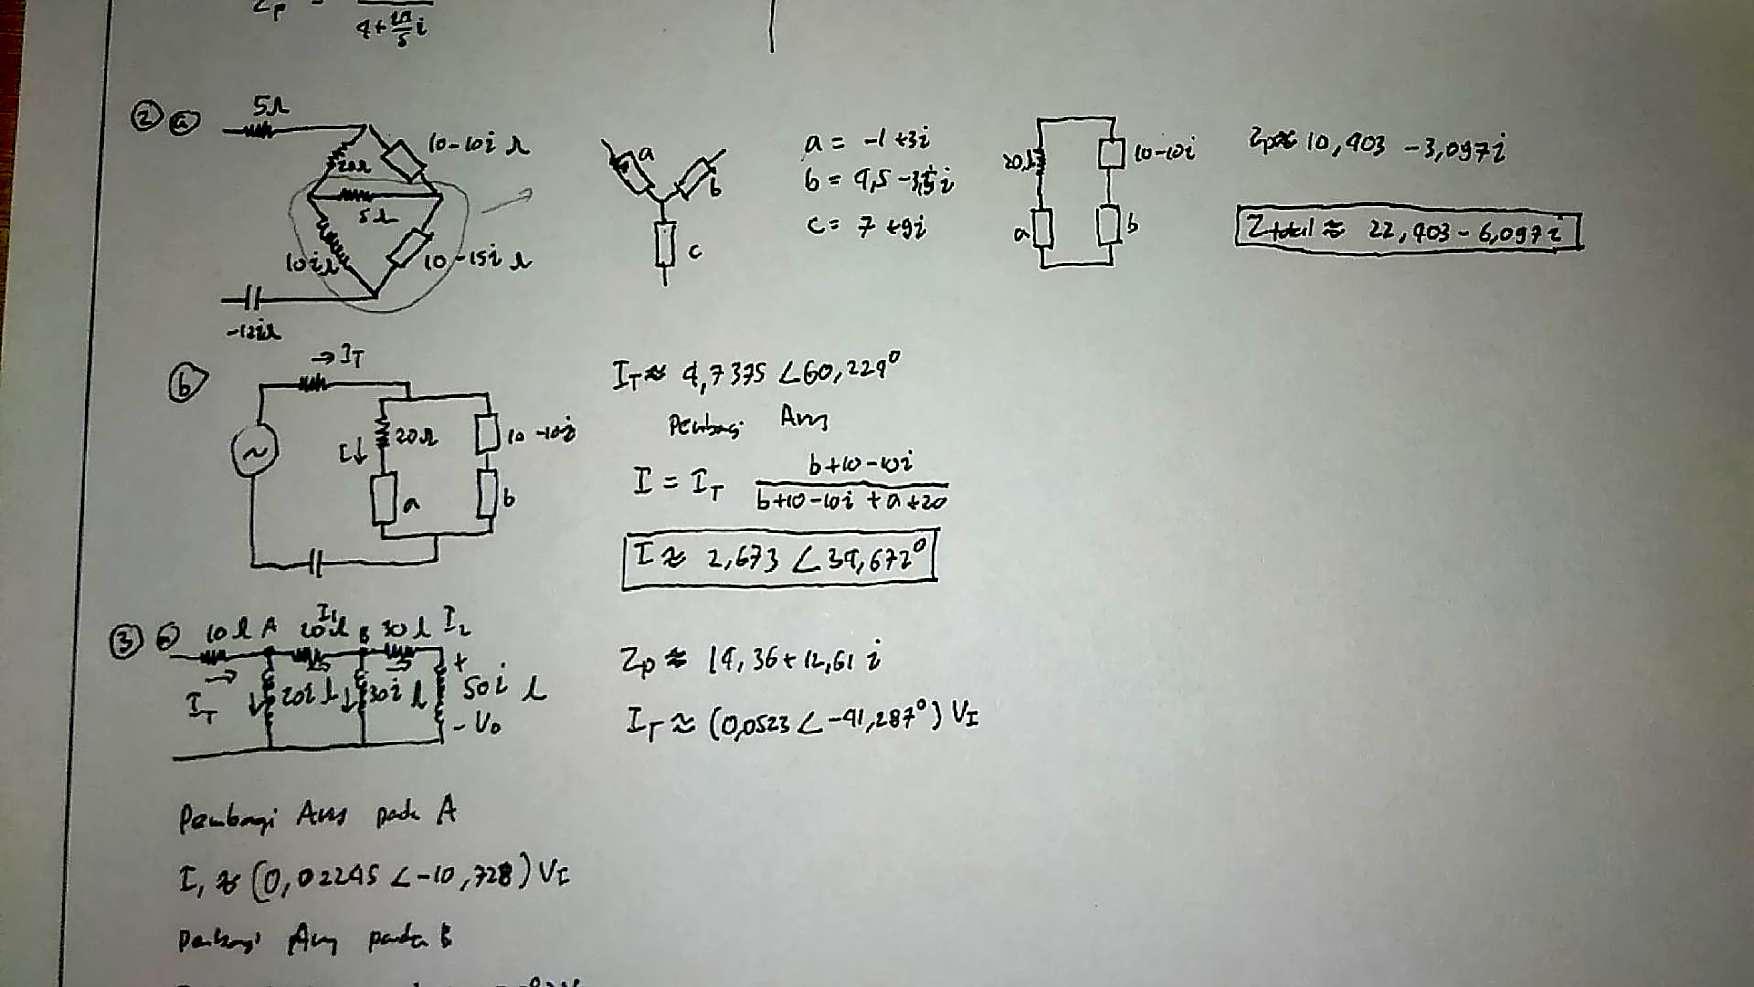 4+
② ⓐ
5Ω
20Ω
10-10i Ω
5Ω
10iΩ
10-15i Ω
-12iΩ
a
b
c
a = -1+3i
b = 4,5-3,5i
c = 7+9i
20Ω
10-10i
a
b
Zp≈ 10,403 -3,097i
Ztotal ≈ 22,403-6,097i
ⓑ
→IT
I↓
20Ω
10-10i
a
b
~
IT≈ 4,7375 ∠60,229°
Pembagi Arus
I = IT (b+10-10i)/(b+10-10i+a+20)
I ≈ 2,673 ∠39,672°
③ ⓐ
10Ω A I1 20Ω B 30Ω I2
→
IT
20iΩ
30iΩ
+
50i Ω
- Vo
Zp ≈ 14,36+12,61i
IT ≈ (0,0523∠-41,287°) VI
Pembagi Arus pada A
I1 ≈ (0,02245∠-10,728) VI
Pembagi Arus pada B